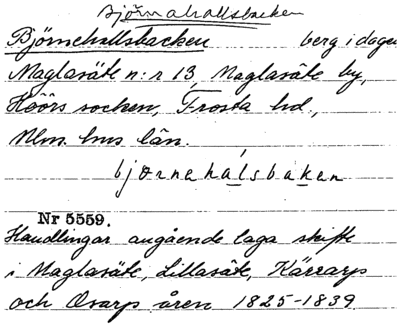 Björnahallsbacken
Björnehallsbacken berg i dagen
Maglasäte n:r 13, Maglasäte by,
Höörs socken, Frosta hd.,
Mlm. hus län.
bjørnehálsbaken
Nr 5559.
Handlingar angående laga skifte
i Maglasäte, Lillasäte, Kärrarp
och Ovarp åren 1825-1839